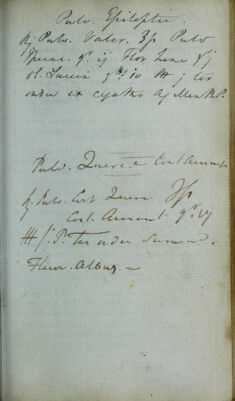 Pulv. Epileptic.
℞ Pulv. Valer. ℥ß Pulv
Ipecac. gr. ij Flor Zinc gr j
Ol. Succin gtt iv M j ter
in die ex cyatho Aq Menth P.
Pulv. Querc. c Cort Aurant
℞ Pulv. Cort Querc ʒß
Cort. Aurant gr. vj
M f. P. Ter in die Sumend.
Fluor. Albus. –